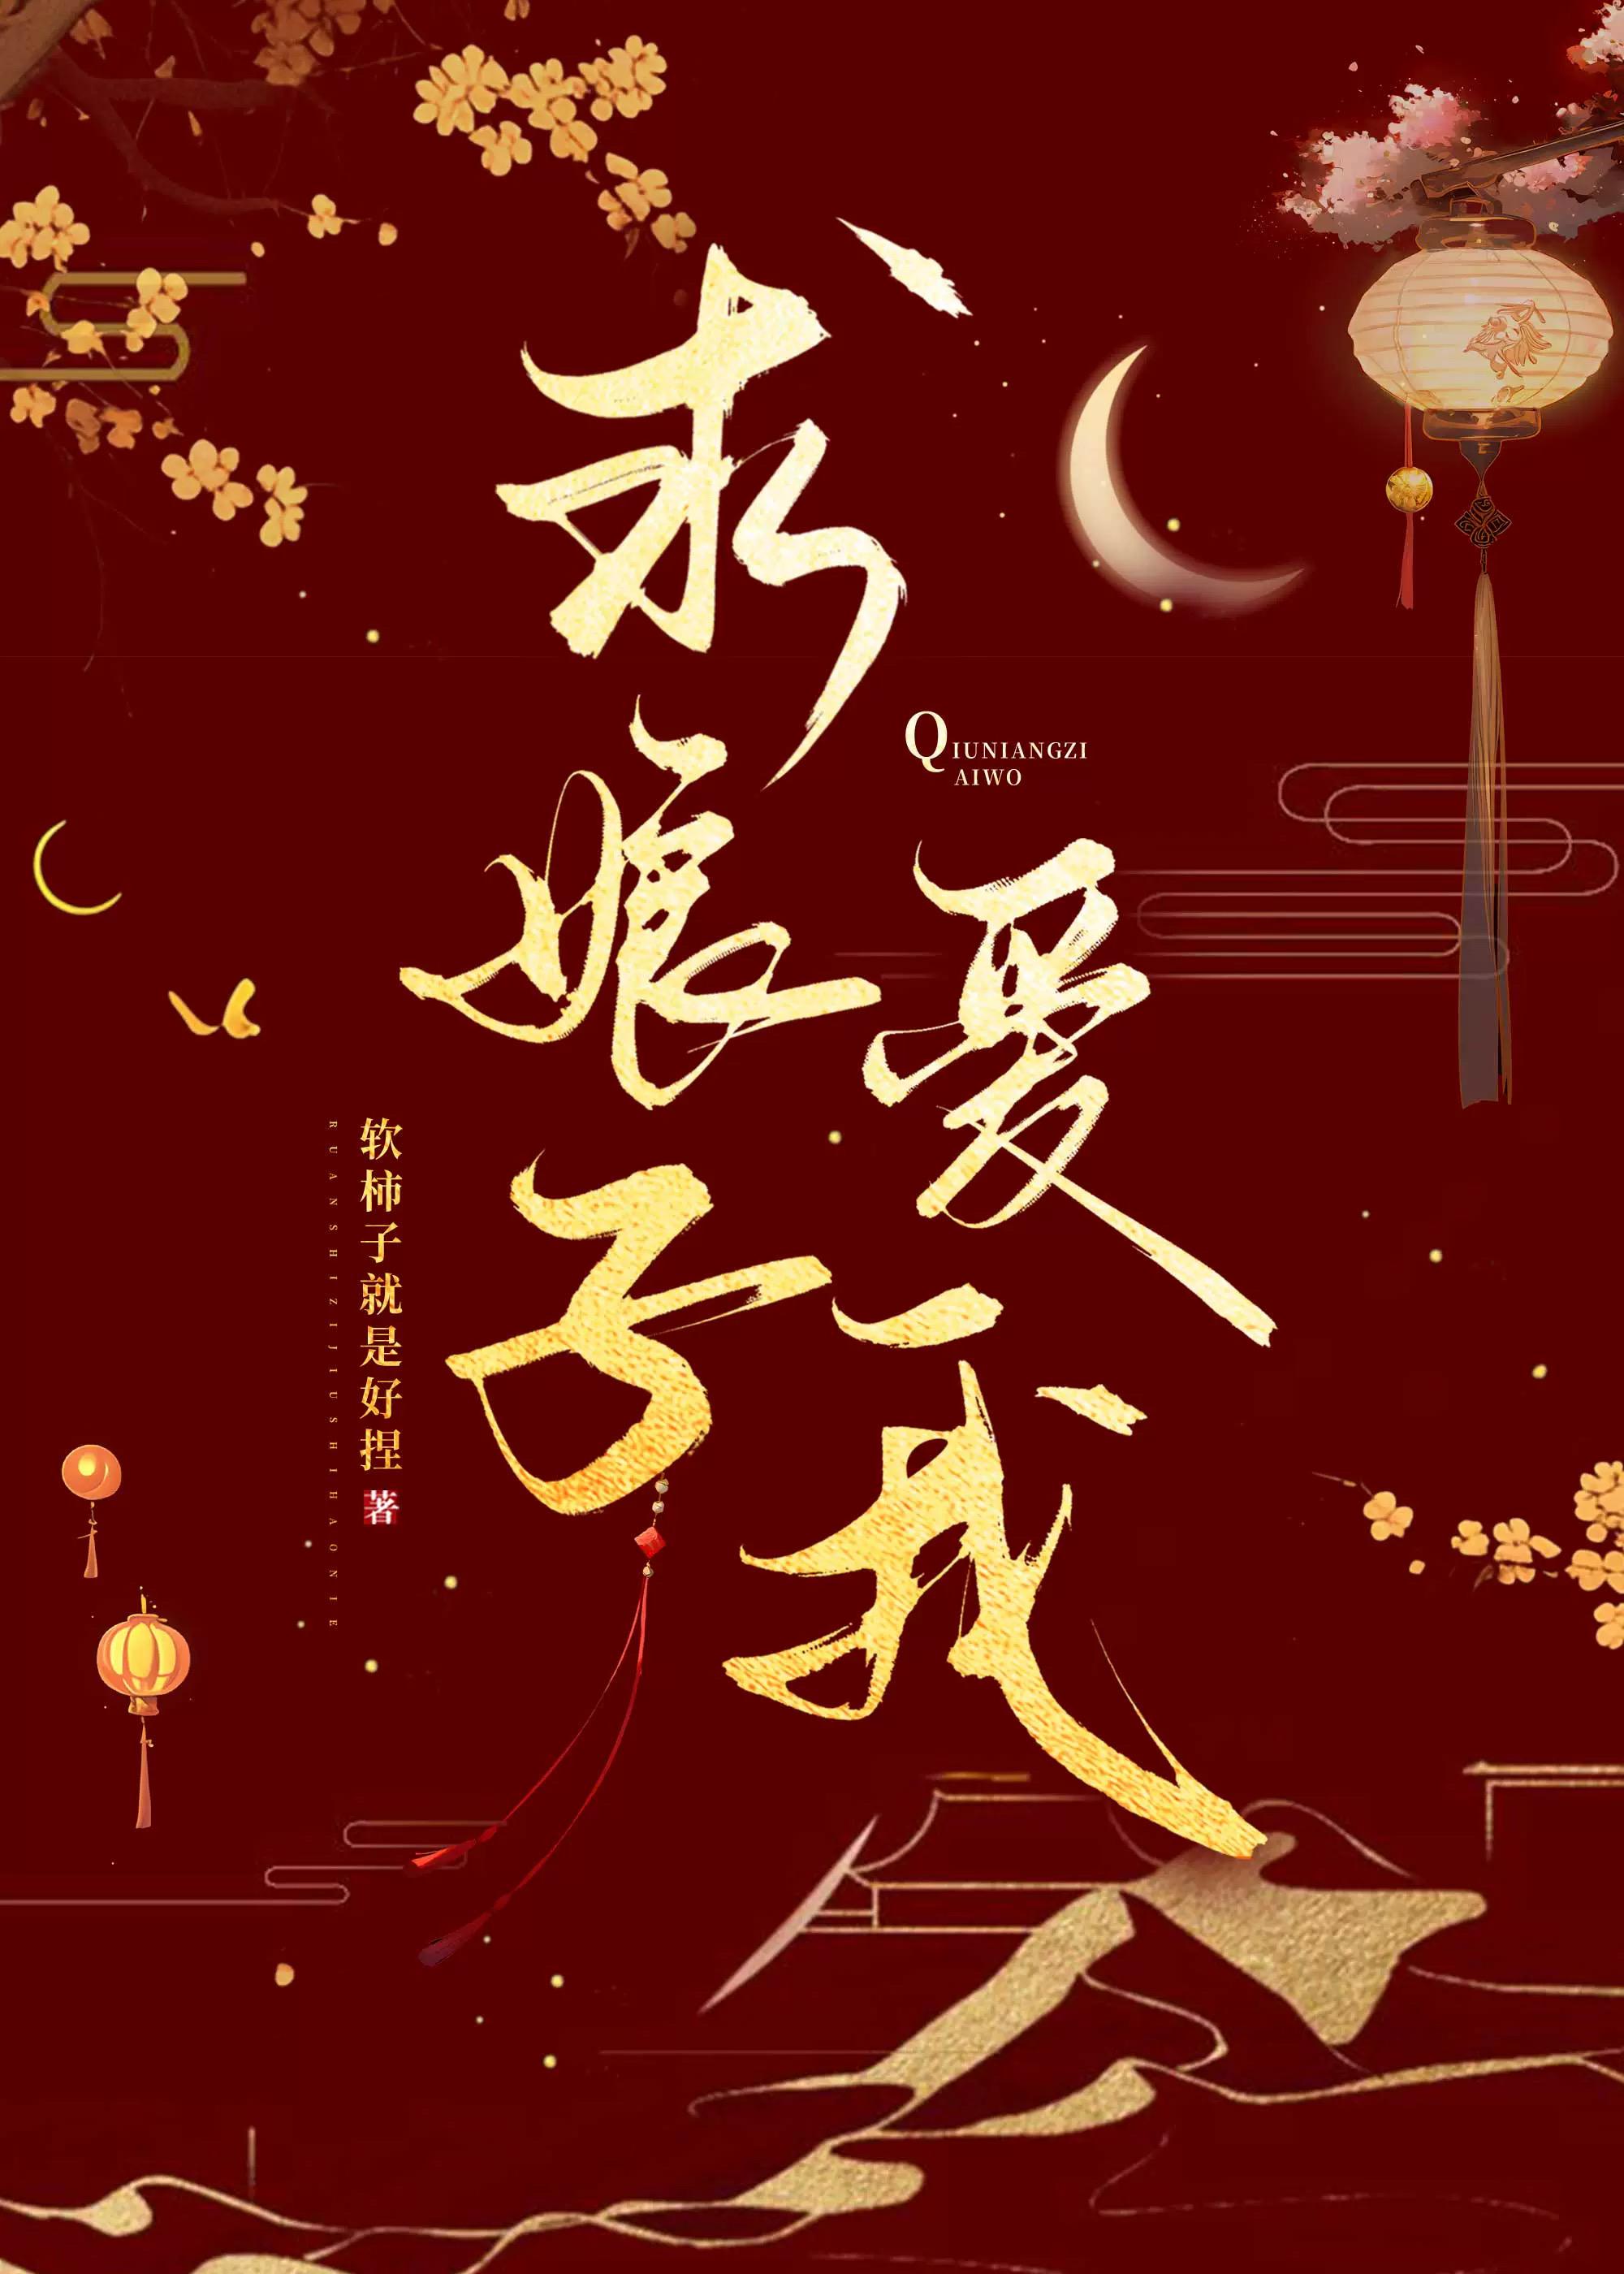 求娘子
爱我
QIUNIANGZI
AIWO
软柿子就是好捏 著
RUANSHIZIJIUSHIHAONIE